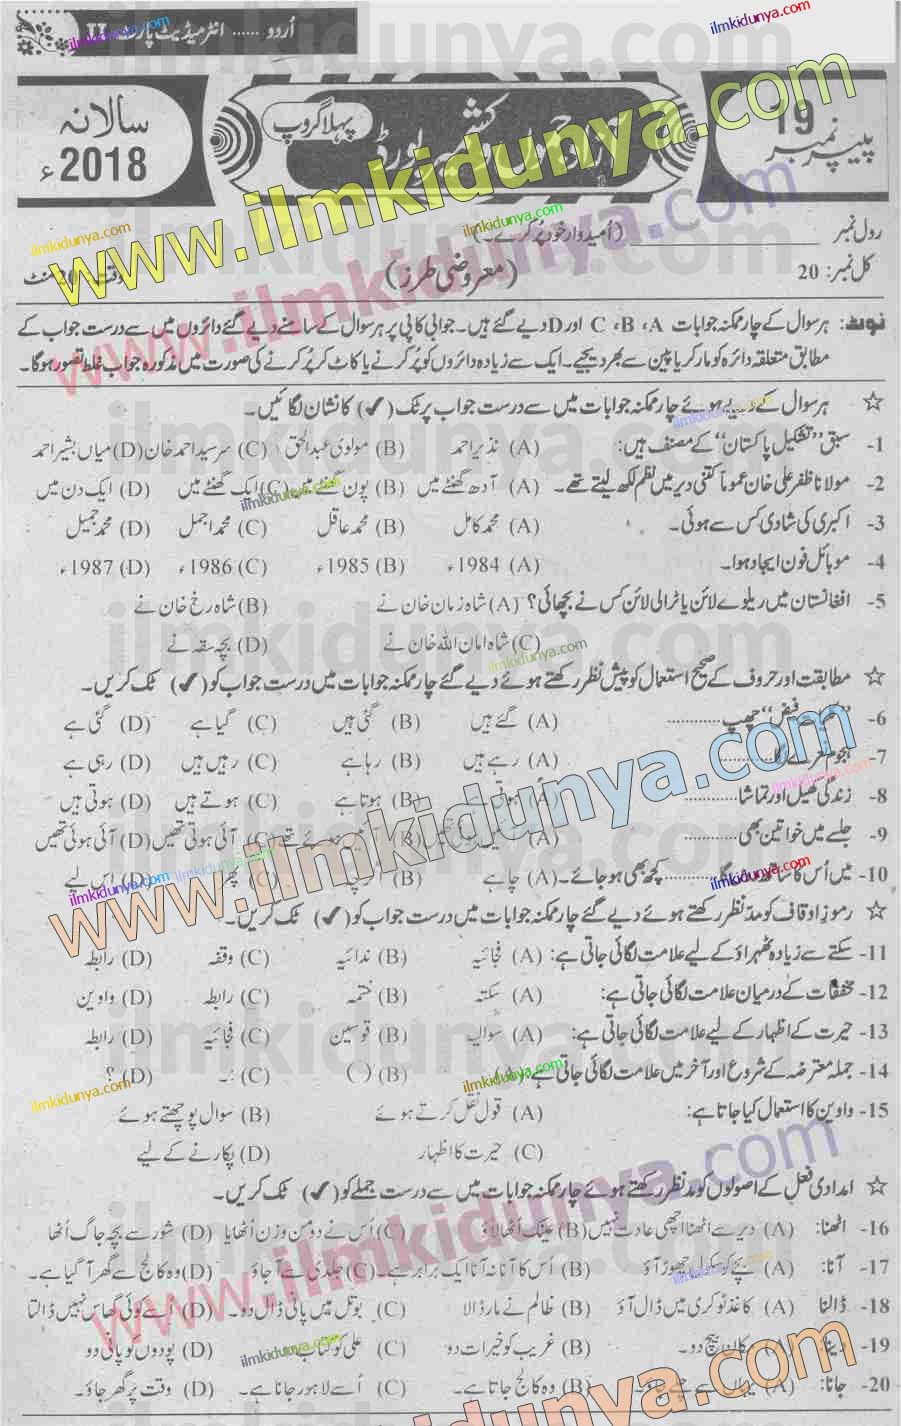 اُردو ...... انٹرمیڈیٹ پارٹ II
پیپر نمبر 19
جموں و کشمیر بورڈ
پہلا گروپ
سالانہ 2018ء
رول نمبر ____________ (اُمیدوار خود پُر کرے۔)
کل نمبر: 20 (معروضی طرز) وقت: 20 منٹ
نوٹ: ہر سوال کے چار ممکنہ جوابات A، B، C اور D دیے گئے ہیں۔ جوابی کاپی پر ہر سوال کے سامنے دیے گئے دائروں میں سے درست جواب کے
مطابق متعلقہ دائرہ کو مارکر یا پین سے بھر دیجیے۔ ایک سے زیادہ دائروں کو پُر کرنے یا کاٹ کر پُر کرنے کی صورت میں مذکورہ جواب غلط تصور ہوگا۔
☆ ہر سوال کے دیے ہوئے چار ممکنہ جوابات میں سے درست جواب پر ٹک (✔) کا نشان لگائیں۔
1- سبق ”تشکیل پاکستان“ کے مصنف ہیں: (A) نذیر احمد (B) مولوی عبدالحق (C) سرسید احمد خان (D) میاں بشیر احمد
2- مولانا ظفر علی خان عموماً کتنی دیر میں نظم لکھ لیتے تھے۔ (A) آدھ گھنٹے میں (B) پون گھنٹے میں (C) ایک گھنٹے میں (D) ایک دن میں
3- اکبری کی شادی کس سے ہوئی۔ (A) محمد کامل (B) محمد عاقل (C) محمد اجمل (D) محمد جمیل
4- موبائل فون ایجاد ہوا۔ (A) 1984ء (B) 1985ء (C) 1986ء (D) 1987ء
5- افغانستان میں ریلوے لائن یا ٹرالی لائن کس نے بچھائی؟ (A) شاہ زمان خان نے (B) شاہ رخ خان نے
(C) شاہ امان اللہ خان نے (D) بچہ سقہ نے
☆ مطابقت اور حروف کے صحیح استعمال کو پیش نظر رکھتے ہوئے دیے گئے چار ممکنہ جوابات میں درست جواب کو (✔) ٹک کریں۔
6- فیض“ چھپ ........... (A) گئے ہیں (B) گئی ہیں (C) گیا ہے (D) گئی ہے
7- ہجوم نعرے لگا ........... (A) رہے ہیں (B) رہا ہے (C) رہیں ہیں (D) رہی ہے
8- زندگی کھیل اور تماشا ........... (A) ہوتی ہے (B) ہوتا ہے (C) ہوتے ہیں (D) ہوتی ہیں
9- جلسے میں خواتین بھی ........... (A) (B) ہوئے تھے (C) آئی ہوتی تھیں (D) آئی ہوئی تھیں
10- میں اُس کا ساتھ ........... کچھ بھی ہو جائے۔ (A) چاہے (B) اگرچہ (C) پھر (D) اس لیے
☆ رموزِ اوقاف کو مدِ نظر رکھتے ہوئے دیے گئے چار ممکنہ جوابات میں درست جواب کو (✔) ٹک کریں۔
11- سکتے سے زیادہ ٹھہراؤ کے لیے علامت لگائی جاتی ہے: (A) فجائیہ (B) ندائیہ (C) وقفہ (D) رابطہ
12- مخففات کے درمیان علامت لگائی جاتی ہے: (A) سکتہ (B) ختمہ (C) رابطہ (D) واوین
13- حیرت کے اظہار کے لیے علامت لگائی جاتی ہے: (A) سوالیہ (B) قوسین (C) فجائیہ (D) رابطہ
14- جملہ معترضہ کے شروع اور آخر میں علامت لگائی جاتی ہے: (B) ( ) (C) :۔ (D) ؟
15- واوین کا استعمال کیا جاتا ہے: (A) قول نقل کرتے ہوئے (B) سوال پوچھتے ہوئے
(C) حیرت کا اظہار (D) پکارنے کے لیے
☆ امدادی فعل کے اصولوں کو مدنظر رکھتے ہوئے چار ممکنہ جوابات میں سے درست جملے کو (✔) ٹک کریں۔
16- اٹھنا: (A) دیر سے اٹھنا اچھی عادت نہیں (B) عینک اُٹھا لاؤ (C) اُس نے دو من وزن اُٹھایا (D) شور سے بچہ جاگ اُٹھا
17- آنا: (A) بچے کو سکول چھوڑ آؤ (B) اُس کا آنا نہ آنا ایک برابر ہے۔ (C) جلدی سے آجاؤ (D) وہ کالج سے گھر آگیا ہے۔
18- ڈالنا (A) کاغذ ٹوکری میں ڈال آؤ (B) ظالم نے مار ڈالا (C) بوتل میں پانی ڈال دو۔ (D) اُسے کوئی گھاس نہیں ڈالتا
19- دینا: (A) مکان بیچ دو۔ (B) غریب کو خیرات دو (C) علی کو کتاب (D) پودوں کو پانی دو
20- جانا: (A) یہاں سے چلے جاؤ۔ (B) وہ کالج جاتا ہے۔ (C) اُسے لاہور جانا ہے۔ (D) وقت پر گھر جاؤ۔
www.ilmkidunya.com
ilmkidunya.com